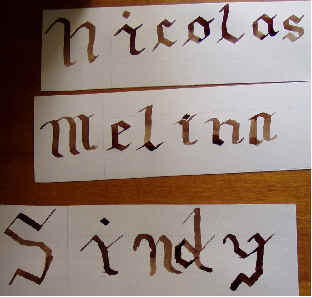 Nicolas
Melina
Sindy